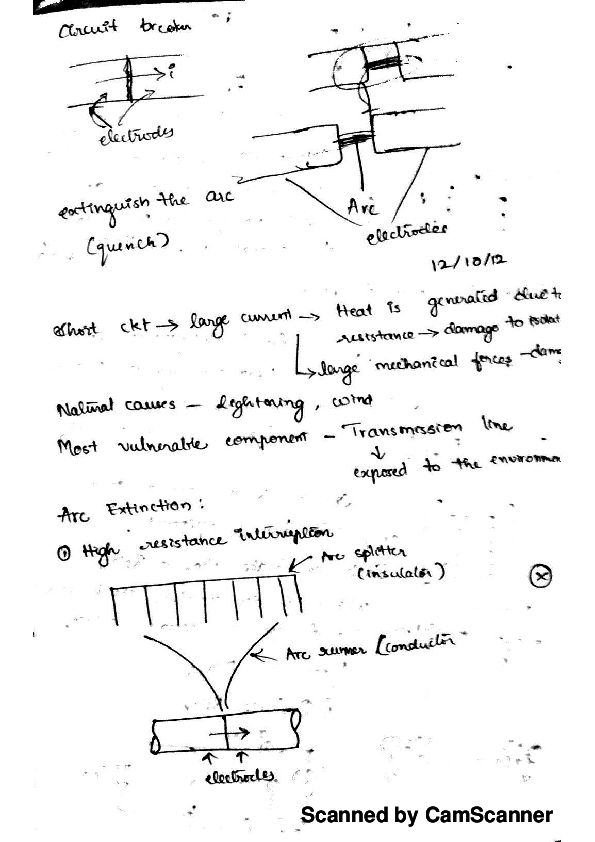 Circuit breaker :
i
electrodes
extinguish the arc
(quench)
Arc
electrodes
12/10/12
Short ckt → large current → Heat is generated due to
resistance → damage to isolat
→ large mechanical forces – dam
Natural causes – Lightening, wind
Most vulnerable component – Transmission line
↓
exposed to the environme
Arc Extinction :
① High resistance interruption
Arc splitter
(insulator)
Arc runner (conductor
electrodes
Scanned by CamScanner